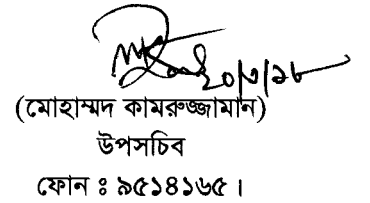 ২০/৩/১৮
(মোহাম্মদ কামরুজ্জামান)
উপসচিব
ফোন ঃ ৯৫১৪১৬৫।